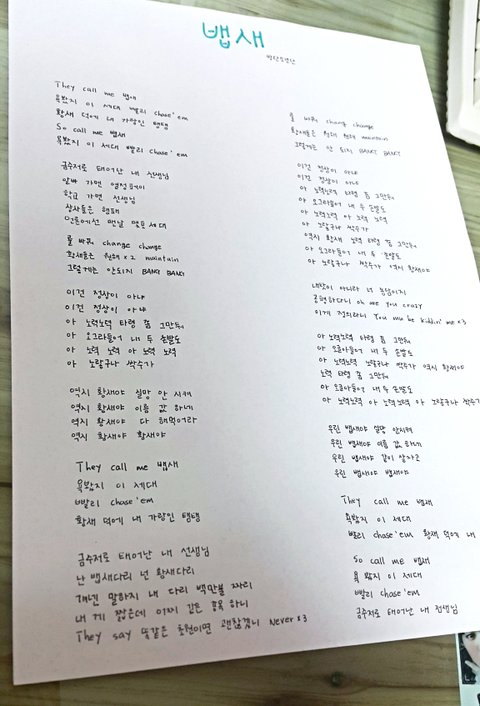 뱁새
방탄소년단
They call me 뱁새
욕봤지 이 세대 빨리 chase'em
황새 덕에 내 가랑인 탱탱
So call me 뱁새
욕봤지 이 세대 빨리 chase'em
금수저로 태어난 내 선생님
알바 가면 열정페이
학교 가면 선생님
상사들은 행패
언론에선 맨날 몇포 세대
룰 바꿔 change change
황새들은 원해 x2 maintain
그렇게는 안되지 BANG BANG
이건 정상이 아냐
이건 정상이 아냐
아 노력노력 타령 좀 그만둬
아 오그라들어 내 두 손발도
아 노력 노력 아 노력 노력
아 노랗구나 싹수가
역시 황새야 실망 안 시켜
역시 황새야 이름 값 하네
역시 황새야 다 해먹어라
역시 황새야 황새야
They call me 뱁새
욕봤지 이 세대
빨리 chase'em
황새 덕에 내 가랑인 탱탱
금수저로 태어난 내 선생님
난 뱁새다리 넌 황새다리
걔넨 말하지 내 다린 백만불 짜리
내 게 짧은데 어찌 같은 종목 하니
They say 똑같은 초원이면 괜찮잖니 Never x3
룰 바꿔 change change
황새들은 원해 원해 maintain
그렇게는 안 되지 BANG BANG
이건 정상이 아냐
이건 정상이 아냐
아 노력노력 타령 좀 그만둬
아 오그라들어 내 두 손발도
아 노력노력 아 노력 노력
아 노랗구나 싹수가
역시 황새 노력 타령 좀 그만둬
아 오그라들어 내 두 손발도
아 노랗구나 싹수가 역시 황새야
내탓이 아니라니 너 농담이지
공평하다니 oh are you crazy
이게 정의라니 You mu be kiddin' me x3
아 노력노력 타령 좀 그만둬
아 오그라들어 내 두 손발도
아 노력노력 노랗구나 싹수가 역시 황새야
노력 타령 좀 그만둬
아 오그라들어 내 두 손발도
아 노력노력 아 노력노력 아 노랗구나 싹수가
우린 뱁새야 실망 안시켜
우린 뱁새야 이름 값 하네
우린 뱁새야 같이 살자고
우린 뱁새야 뱁새야
They call me 뱁새
욕봤지 이 세대
빨리 chase'em 황새 덕에 내
So call me 뱁새
욕봤지 이 세대
빨리 chase'em
금수저로 태어난 내 선생님